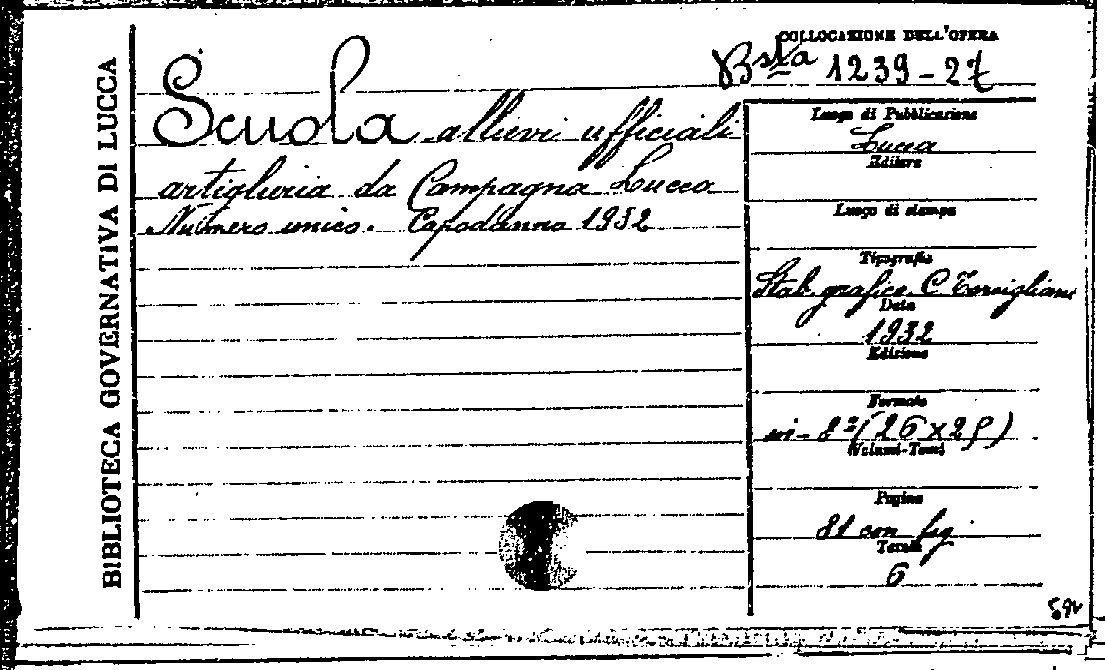 BIBLIOTECA GOVERNATIVA DI LUCCA
COLLOCAZIONE DELL'OPERA
Bsta 1239-27
Scuola allievi ufficiali
artiglieria da Campagna Lucca
Numero unico. Capodanno 1932
Luogo di Pubblicazione
Lucca
Editore
Luogo di stampa
Tipografia
Stab. grafico C. Torsigliani
Data
1932
Edizione
Formato
in-8º (26×29)
(Volumi-Tomi)
Pagine
81 con fig.
Tavole
6